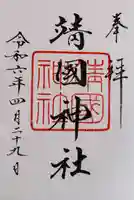 奉拝
靖國神社
靖国神社
令和六年四月二十九日